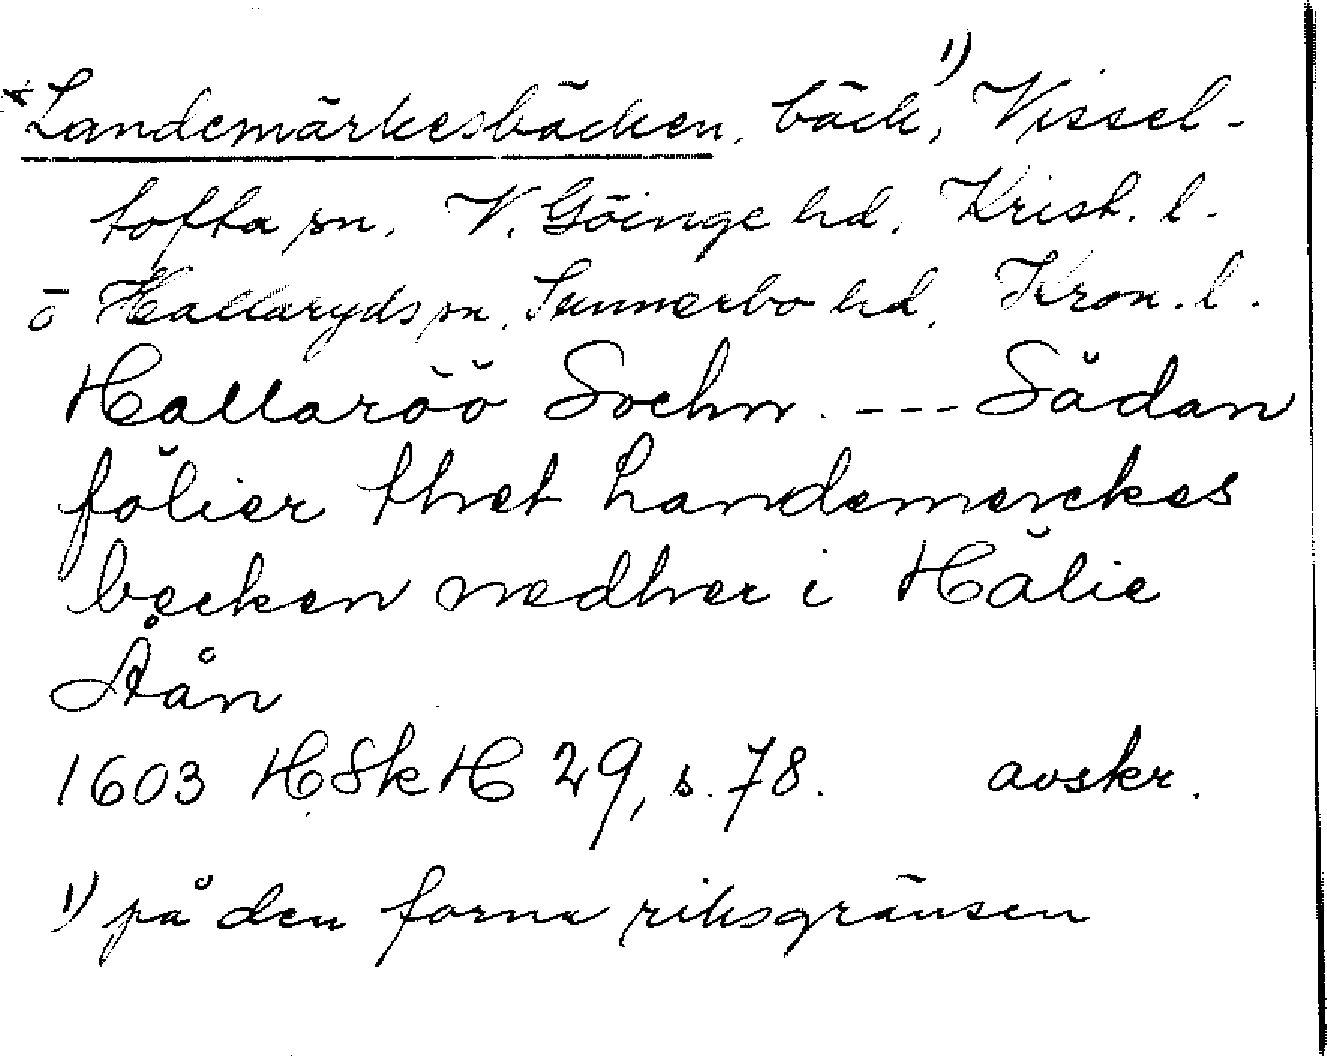 *Landemärkesbäcken, bäck,¹⁾ Vissel-
tofta sn, V. Göinge hd, Krist. l.
o Hallaryds sn, Sunnerbo hd, Kron. l.
Hallaröö Sochn. --- Sådan
fölier thet Landemerckes
becken nedher i Hälie
Åån
1603 H.SkH 29, s. 78. avskr.
1) på den forna riksgränsen